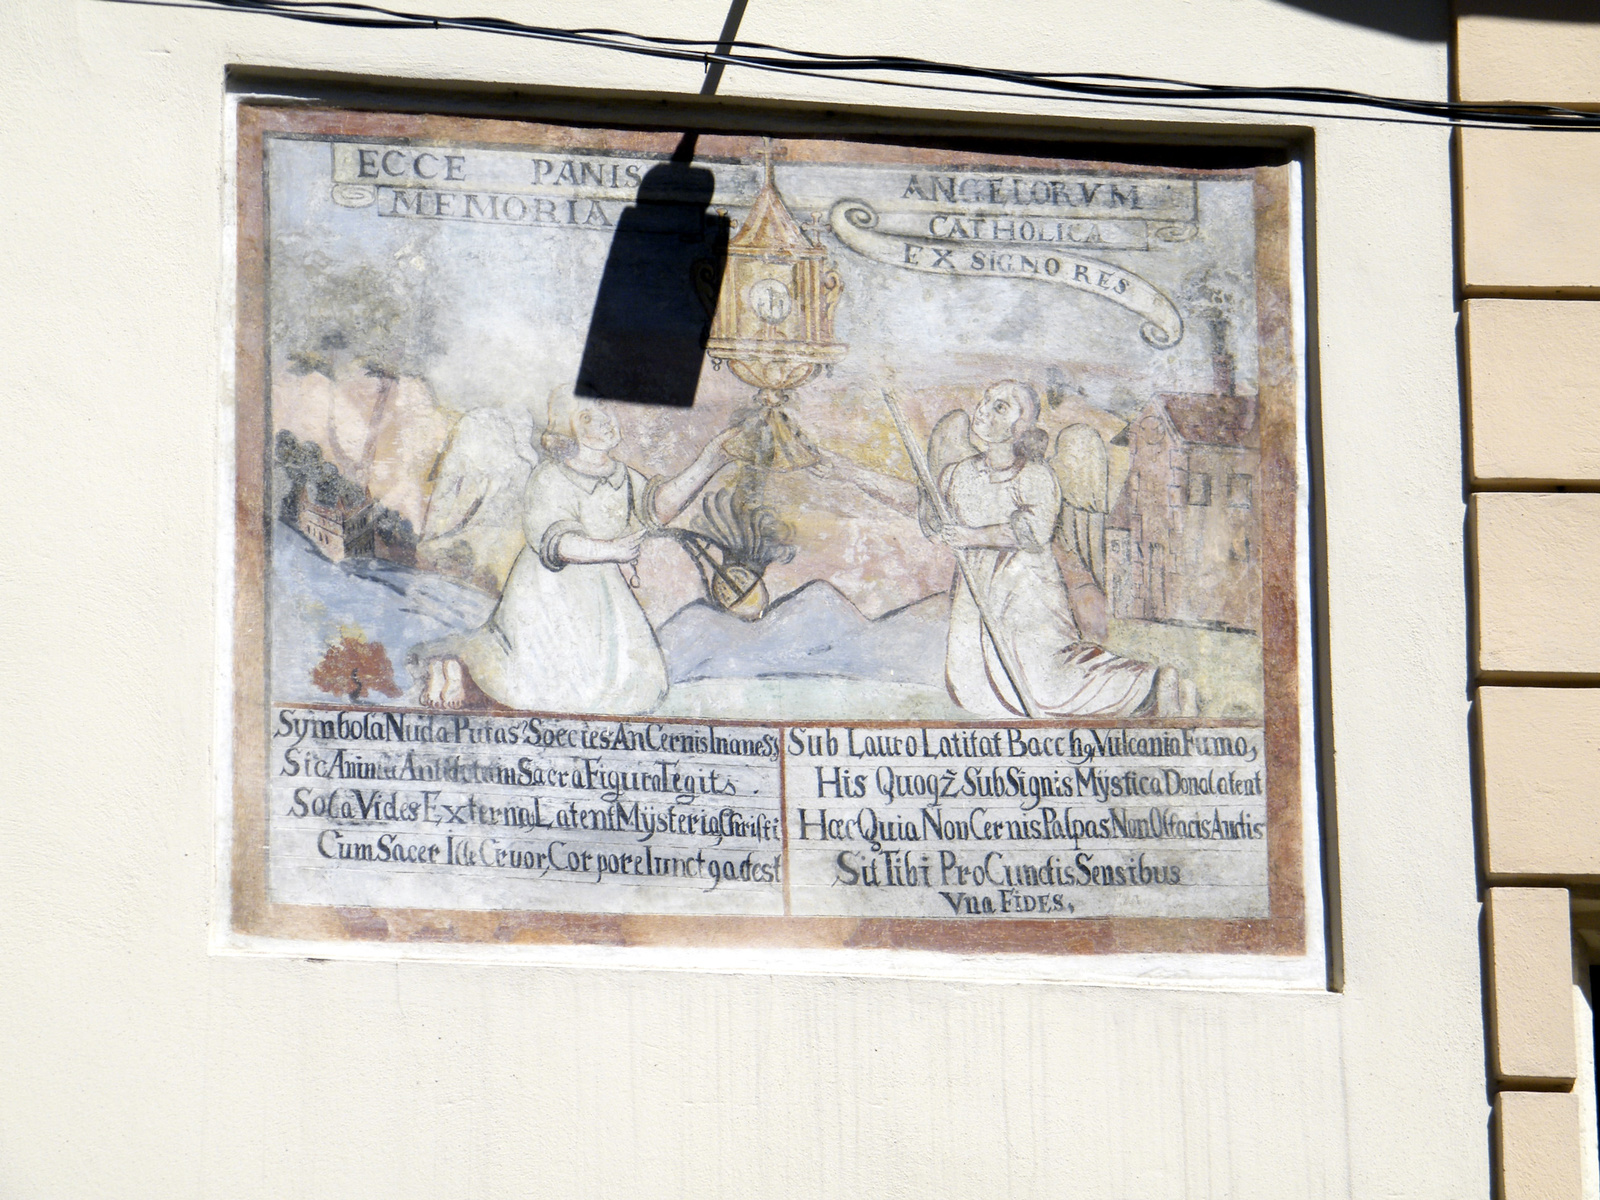 ECCE PANIS ANGELORVM
MEMORIA CATHOLICA
EX SIGNO RES
Symbola Nuda Putas? Soecies An Cernis Inanes?
Sic Animae Antidotum Sacra Figura Tegit.
Sola Vides Externa, Latent Mÿsteria, Christi
Cum Sacer Ille Cruor, Corpore Iunct9 adest
Sub Lauro Latitat Bacch9, Vulcania Fumo,
His Quoqz Sub Signis Mÿstica Dona latent
Hæc Quia Non Cernis Palpas Non Olfacis Audis
Sit Tibi Pro Cunctis Sensibus
Vna FIDES,